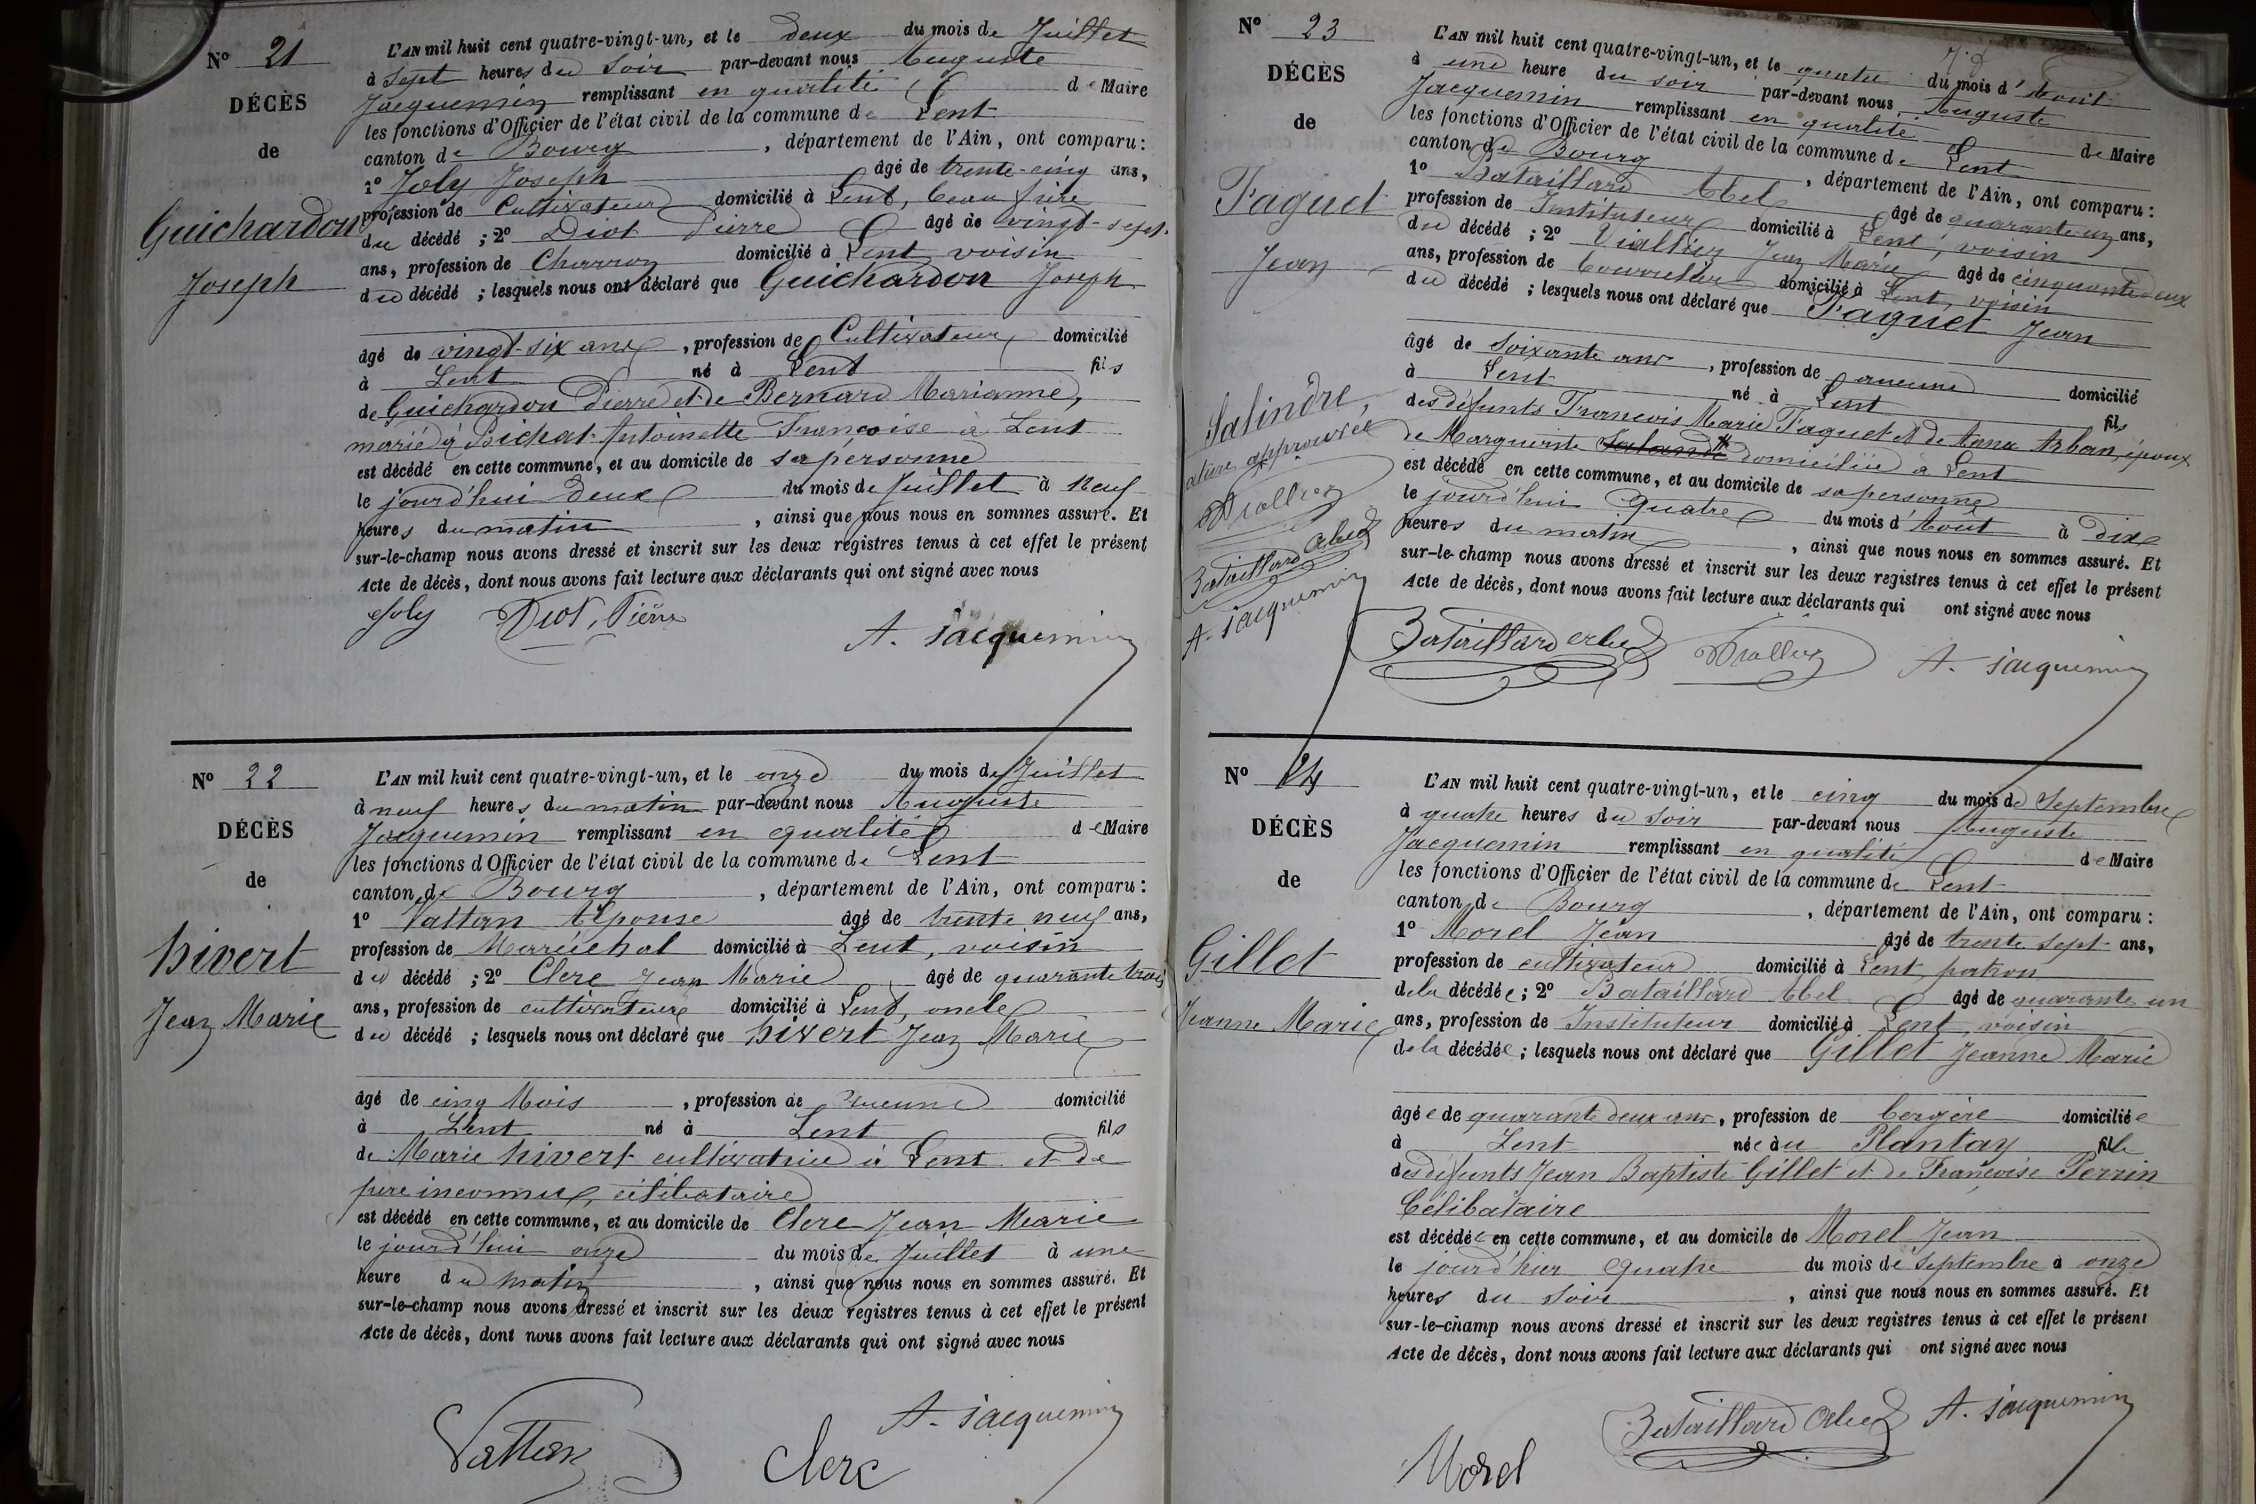 N° 21
DÉCÈS
de
Guichardon
Joseph
L'AN mil huit cent quatre-vingt-un, et le deux du mois de Juillet
à sept heures du soir par-devant nous Auguste
Jacquemin remplissant en qualité de Maire
les fonctions d'Officier de l'état civil de la commune de Lent
canton de Bourg, département de l'Ain, ont comparu:
1° Joly Joseph âgé de trente-cinq ans,
profession de Cultivateur domicilié à Lent, beau frère
du décédé; 2° Diot Pierre âgé de vingt-sept
ans, profession de Charron domicilié à Lent voisin
du décédé; lesquels nous ont déclaré que Guichardon Joseph
âgé de vingt-six ans, profession de Cultivateur domicilié
à Lent né à Lent fils
de Guichardon Pierre et de Bernard Marianne,
marié à Bichat Antoinette Françoise à Lent
est décédé en cette commune, et au domicile de sa personne
le jourd'hui deux du mois de Juillet à neuf
heures du matin, ainsi que nous nous en sommes assuré. Et
sur-le-champ nous avons dressé et inscrit sur les deux registres tenus à cet effet le présent
Acte de décès, dont nous avons fait lecture aux déclarants qui ont signé avec nous
Joly Diot, Pierre
A. Jacquemin
N° 22
DÉCÈS
de
hivert
Jean Marie
L'AN mil huit cent quatre-vingt-un, et le onze du mois de Juillet
à neuf heures du matin par-devant nous Auguste
Jacquemin remplissant en qualité de Maire
les fonctions d'Officier de l'état civil de la commune de Lent
canton de Bourg, département de l'Ain, ont comparu:
1° Vattan Alponse âgé de trente neuf ans,
profession de Maréchal domicilié à Lent, voisin
du décédé; 2° Clerc Jean Marie âgé de quarante trois
ans, profession de cultivateur domicilié à Lent, oncle
du décédé; lesquels nous ont déclaré que hivert Jean Marie
âgé de cinq Mois, profession de aucune domicilié
à Lent né à Lent fils
de Marie hivert cultivatrice à Lent et de
père inconnu, célibataire
est décédé en cette commune, et au domicile de Clerc Jean Marie
le jourd'hui onze du mois de Juillet à une
heure du matin, ainsi que nous nous en sommes assuré. Et
sur-le-champ nous avons dressé et inscrit sur les deux registres tenus à cet effet le présent
Acte de décès, dont nous avons fait lecture aux déclarants qui ont signé avec nous
A. Jacquemin
Vattan Clerc
N° 23
DÉCÈS
de
Faguet
Jean
Salindre,
rature approuvée
Viallier
Bataillard Abel
A. Jacquemin
L'AN mil huit cent quatre-vingt-un, et le quatre du mois d'Août
à une heure du soir par-devant nous Auguste
Jacquemin remplissant en qualité de Maire
les fonctions d'Officier de l'état civil de la commune de Lent
canton de Bourg, département de l'Ain, ont comparu:
1° Bataillard Abel âgé de quarante-un ans,
profession de Instituteur domicilié à Lent, voisin
du décédé; 2° Viallier Jean Marie âgé de cinquante-deux
ans, profession de bourrelier domicilié à Lent, voisin
du décédé; lesquels nous ont déclaré que Faguet Jean
âgé de soixante ans, profession de aucune domicilié
à Lent né à Lent fils
des défunts Francois Marie Faguet et de Anna Arban, époux
de Marguerite domiciliée à Lent
est décédé en cette commune, et au domicile de sa personne
le jourd'hui quatre du mois d'Août à dix
heures du matin, ainsi que nous nous en sommes assuré. Et
sur-le-champ nous avons dressé et inscrit sur les deux registres tenus à cet effet le présent
Acte de décès, dont nous avons fait lecture aux déclarants qui ont signé avec nous
Bataillard Abel Viallier A. Jacquemin
N° 24
DÉCÈS
de
Gillet
Jeanne Marie
L'AN mil huit cent quatre-vingt-un, et le cinq du mois de Septembre
à quatre heures du soir par-devant nous Auguste
Jacquemin remplissant en qualité de Maire
les fonctions d'Officier de l'état civil de la commune de Lent
canton de Bourg, département de l'Ain, ont comparu:
1° Morel Jean âgé de trente sept ans,
profession de cultivateur domicilié à Lent, patron
de la décédée; 2° Bataillard Abel âgé de quarante un
ans, profession de Instituteur domicilié à Lent, voisin
de la décédée; lesquels nous ont déclaré que Gillet Jeanne Marie
âgée de quarante deux ans, profession de bergère domiciliée
à Lent née au Plantay fille
des défunts Jean Baptiste Gillet et de Françoise Perrin
Célibataire
est décédée en cette commune, et au domicile de Morel Jean
le jourd'hier quatre du mois de Septembre à onze
heures du soir, ainsi que nous nous en sommes assuré. Et
sur-le-champ nous avons dressé et inscrit sur les deux registres tenus à cet effet le présent
Acte de décès, dont nous avons fait lecture aux déclarants qui ont signé avec nous
Bataillard Abel A. Jacquemin
Morel